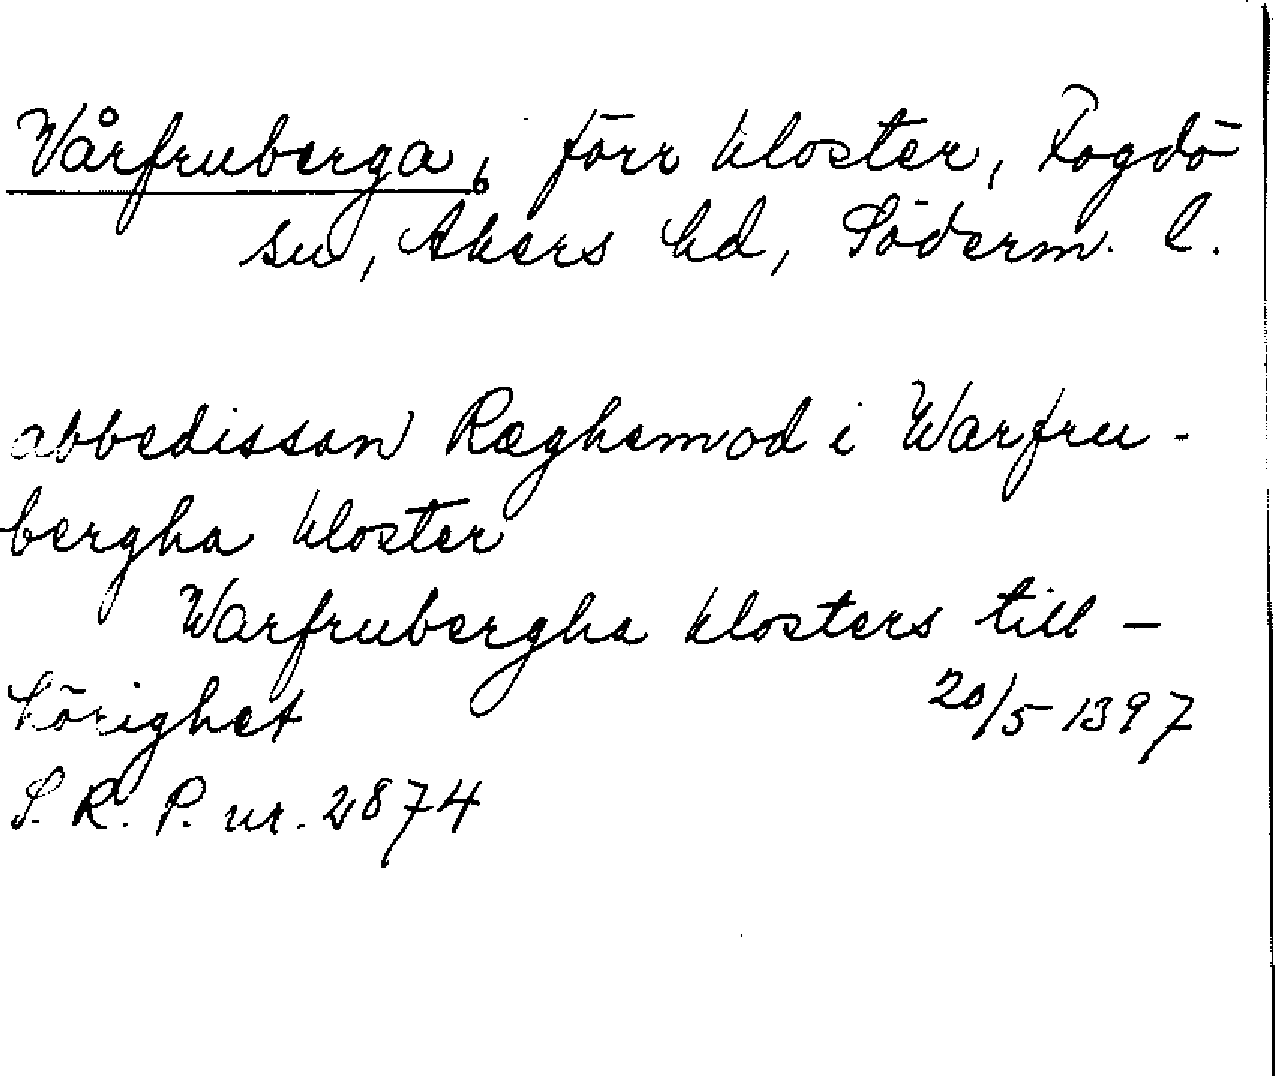 Vårfruberga, förr kloster, Fogdö
sn, Akers hd, Söderm. l.
abbedissan Ræghemod i Warfru-
bergha kloster
Warfrubergha klosters till-
hörighet 20/5 1397
S. R. P. nr. 2874